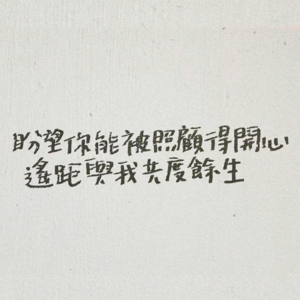 盼望你能被照顧得開心
遙距與我共度餘生